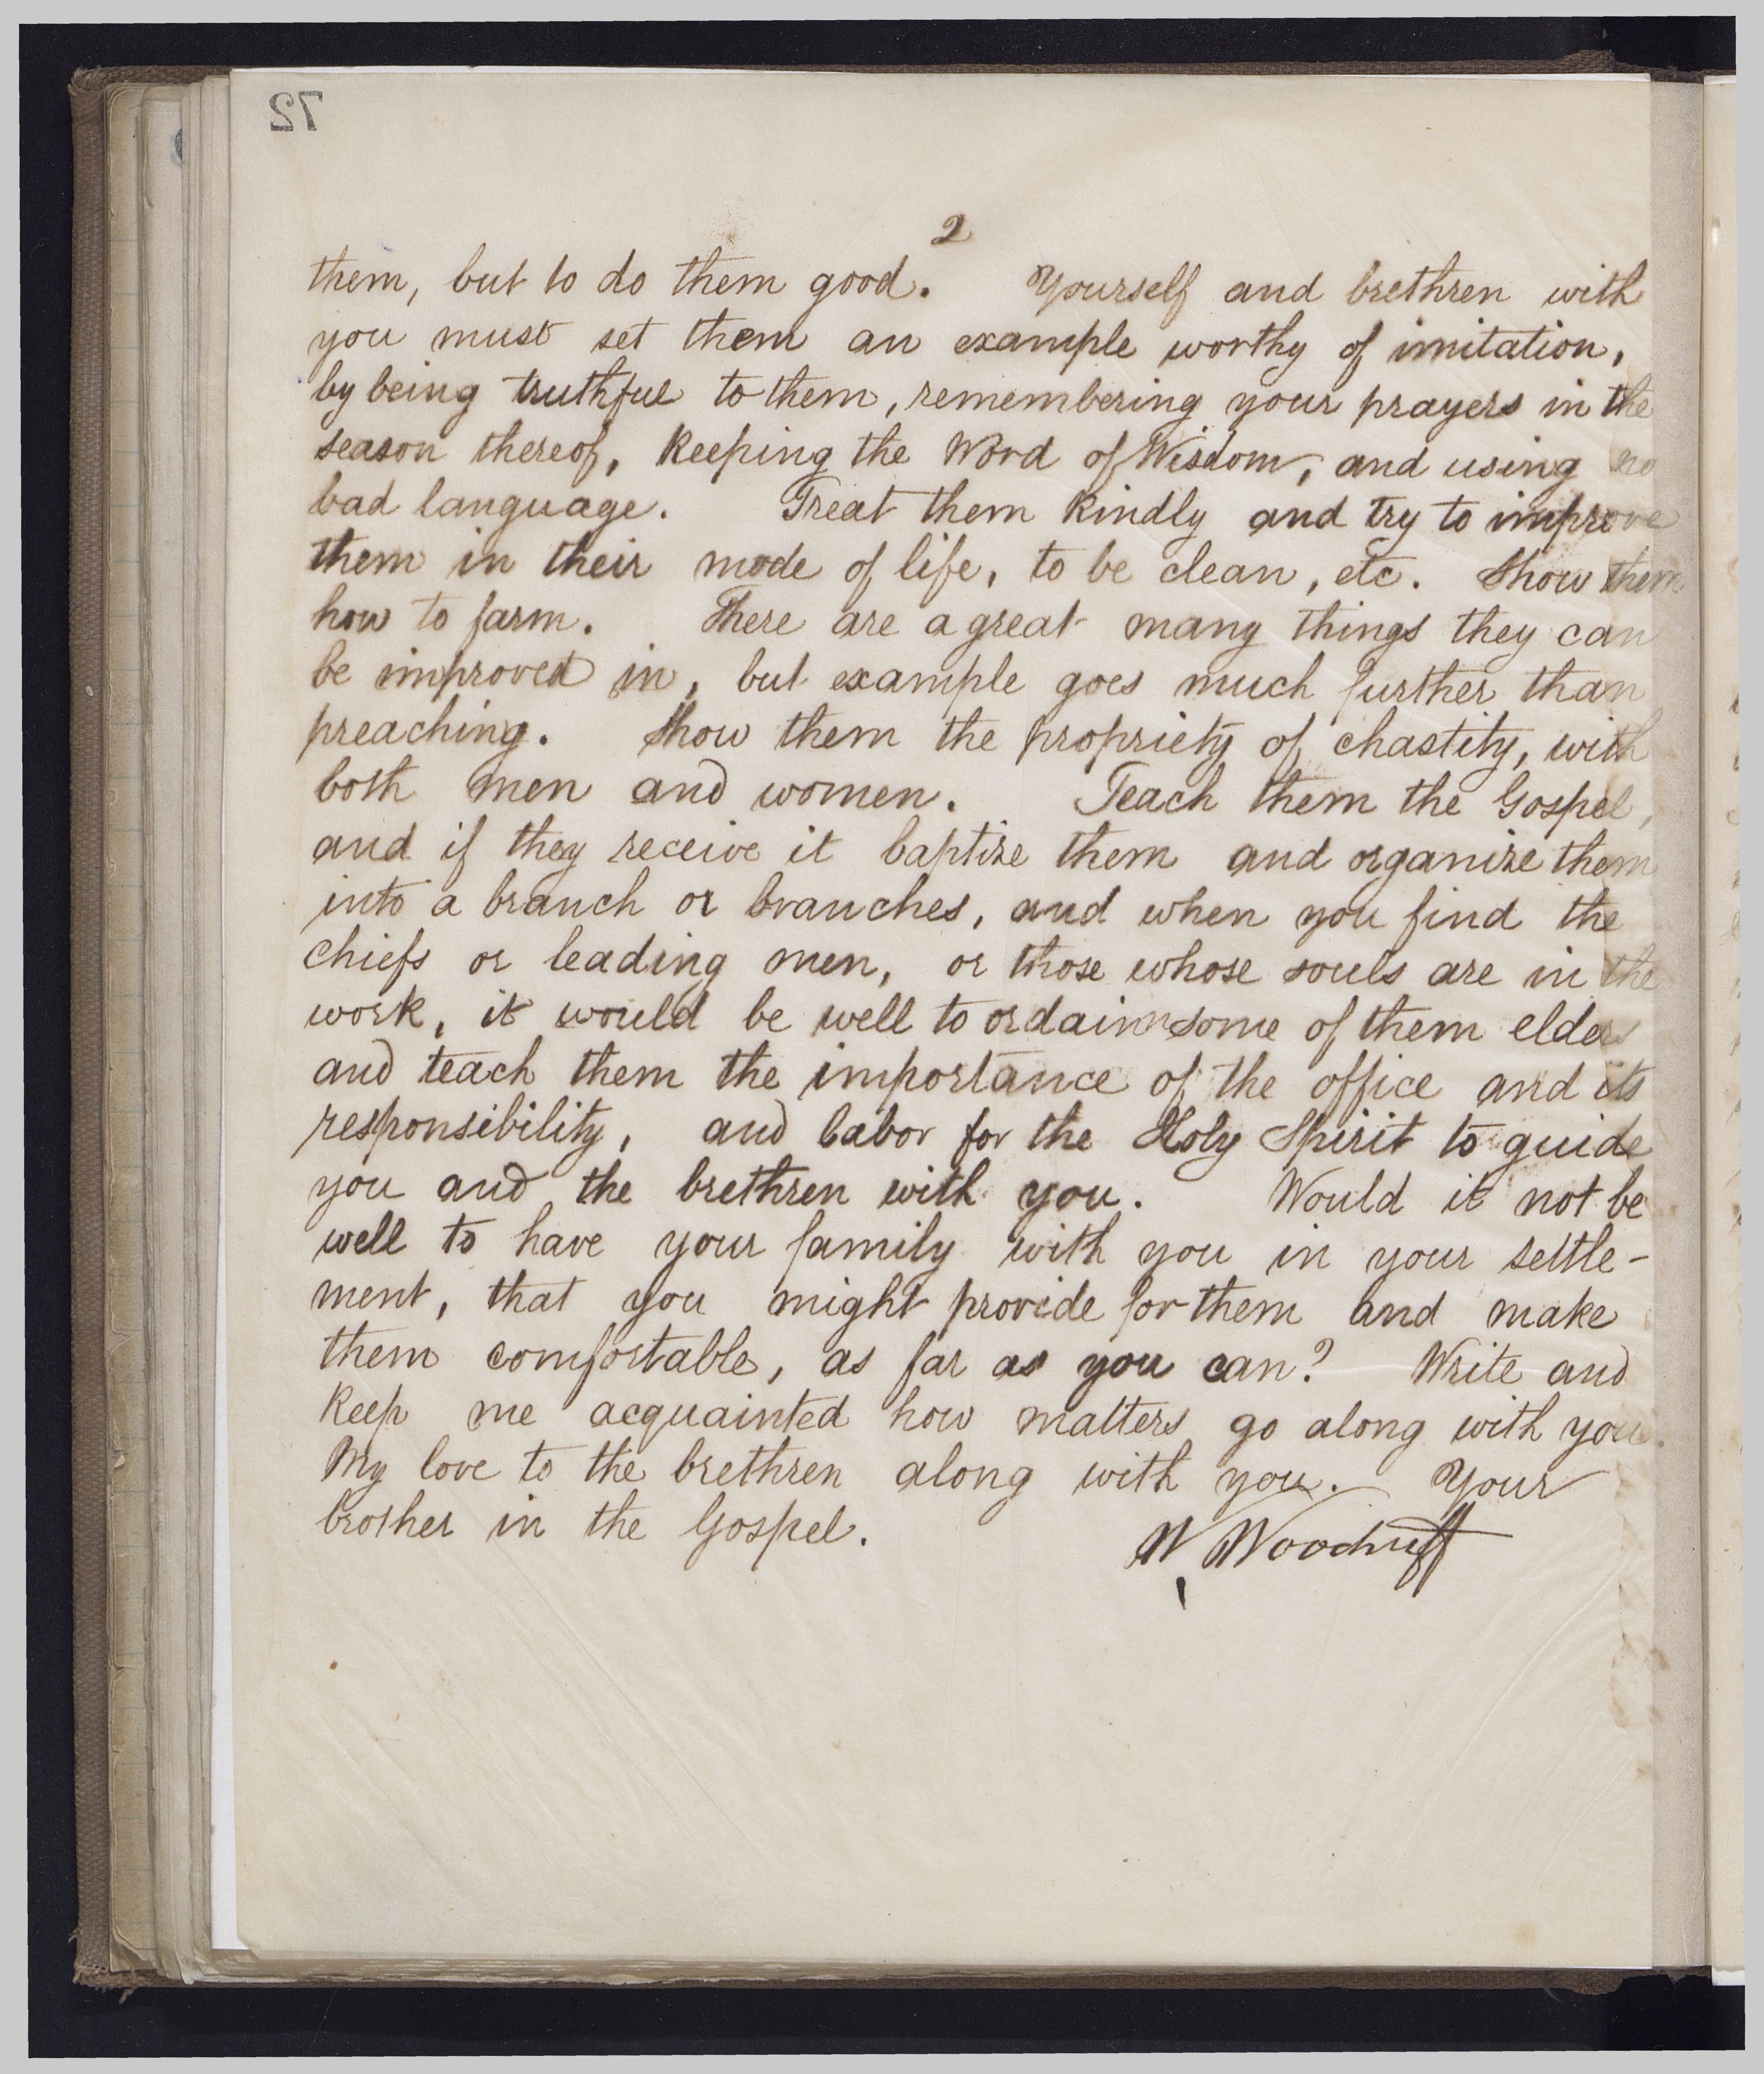 72
2
them, but to do them good. Yourself and brethren with
you must set them an example worthy of imitation,
by being truthful to them, remembering your prayers in the
season thereof, keeping the Word of Wisdom, and using no
bad language. Treat them kindly and try to improve
them in their mode of life, to be clean, etc. Show them
how to farm. There are a great many things they can
be improved in, but example goes much further than
preaching. Show them the propriety of chastity, with
both men and women. Teach them the Gospel,
and if they receive it baptize them and organize them
into a branch or branches, and when you find the
chiefs or leading men, or those whose souls are in the
work, it would be well to ordain some of them elders
and teach them the importance of the office and its
responsibility, and labor for the Holy Spirit to guide
you and the brethren with you. Would it not be
well to have your family with you in your settle-
ment, that you might provide for them and make
them comfortable, as far as you can? Write and
keep me acquainted how matters go along with you.
My love to the brethren along with you. Your
brother in the Gospel.
W. Woodruff